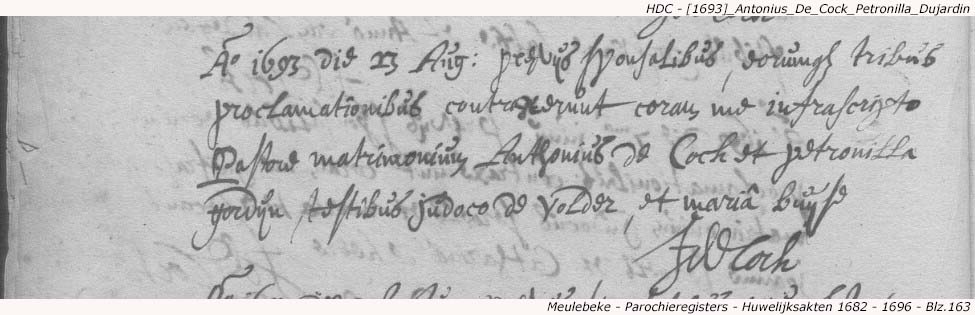 HDC - [1693]_Antonius_De_Cock_Petronilla_Dujardin
Ao 1693 die 23 Aug: prævijs sponsalibus, eorumq tribus
proclamationibus contraxerunt coram me infrascripto
Pastore matrimonium Anthonius de Coch et petronilla
gordijn, testibus judoco de volder, et mariâ buyse
Coch
Meulebeke - Parochieregisters - Huwelijksakten 1682 - 1696 - Blz.163